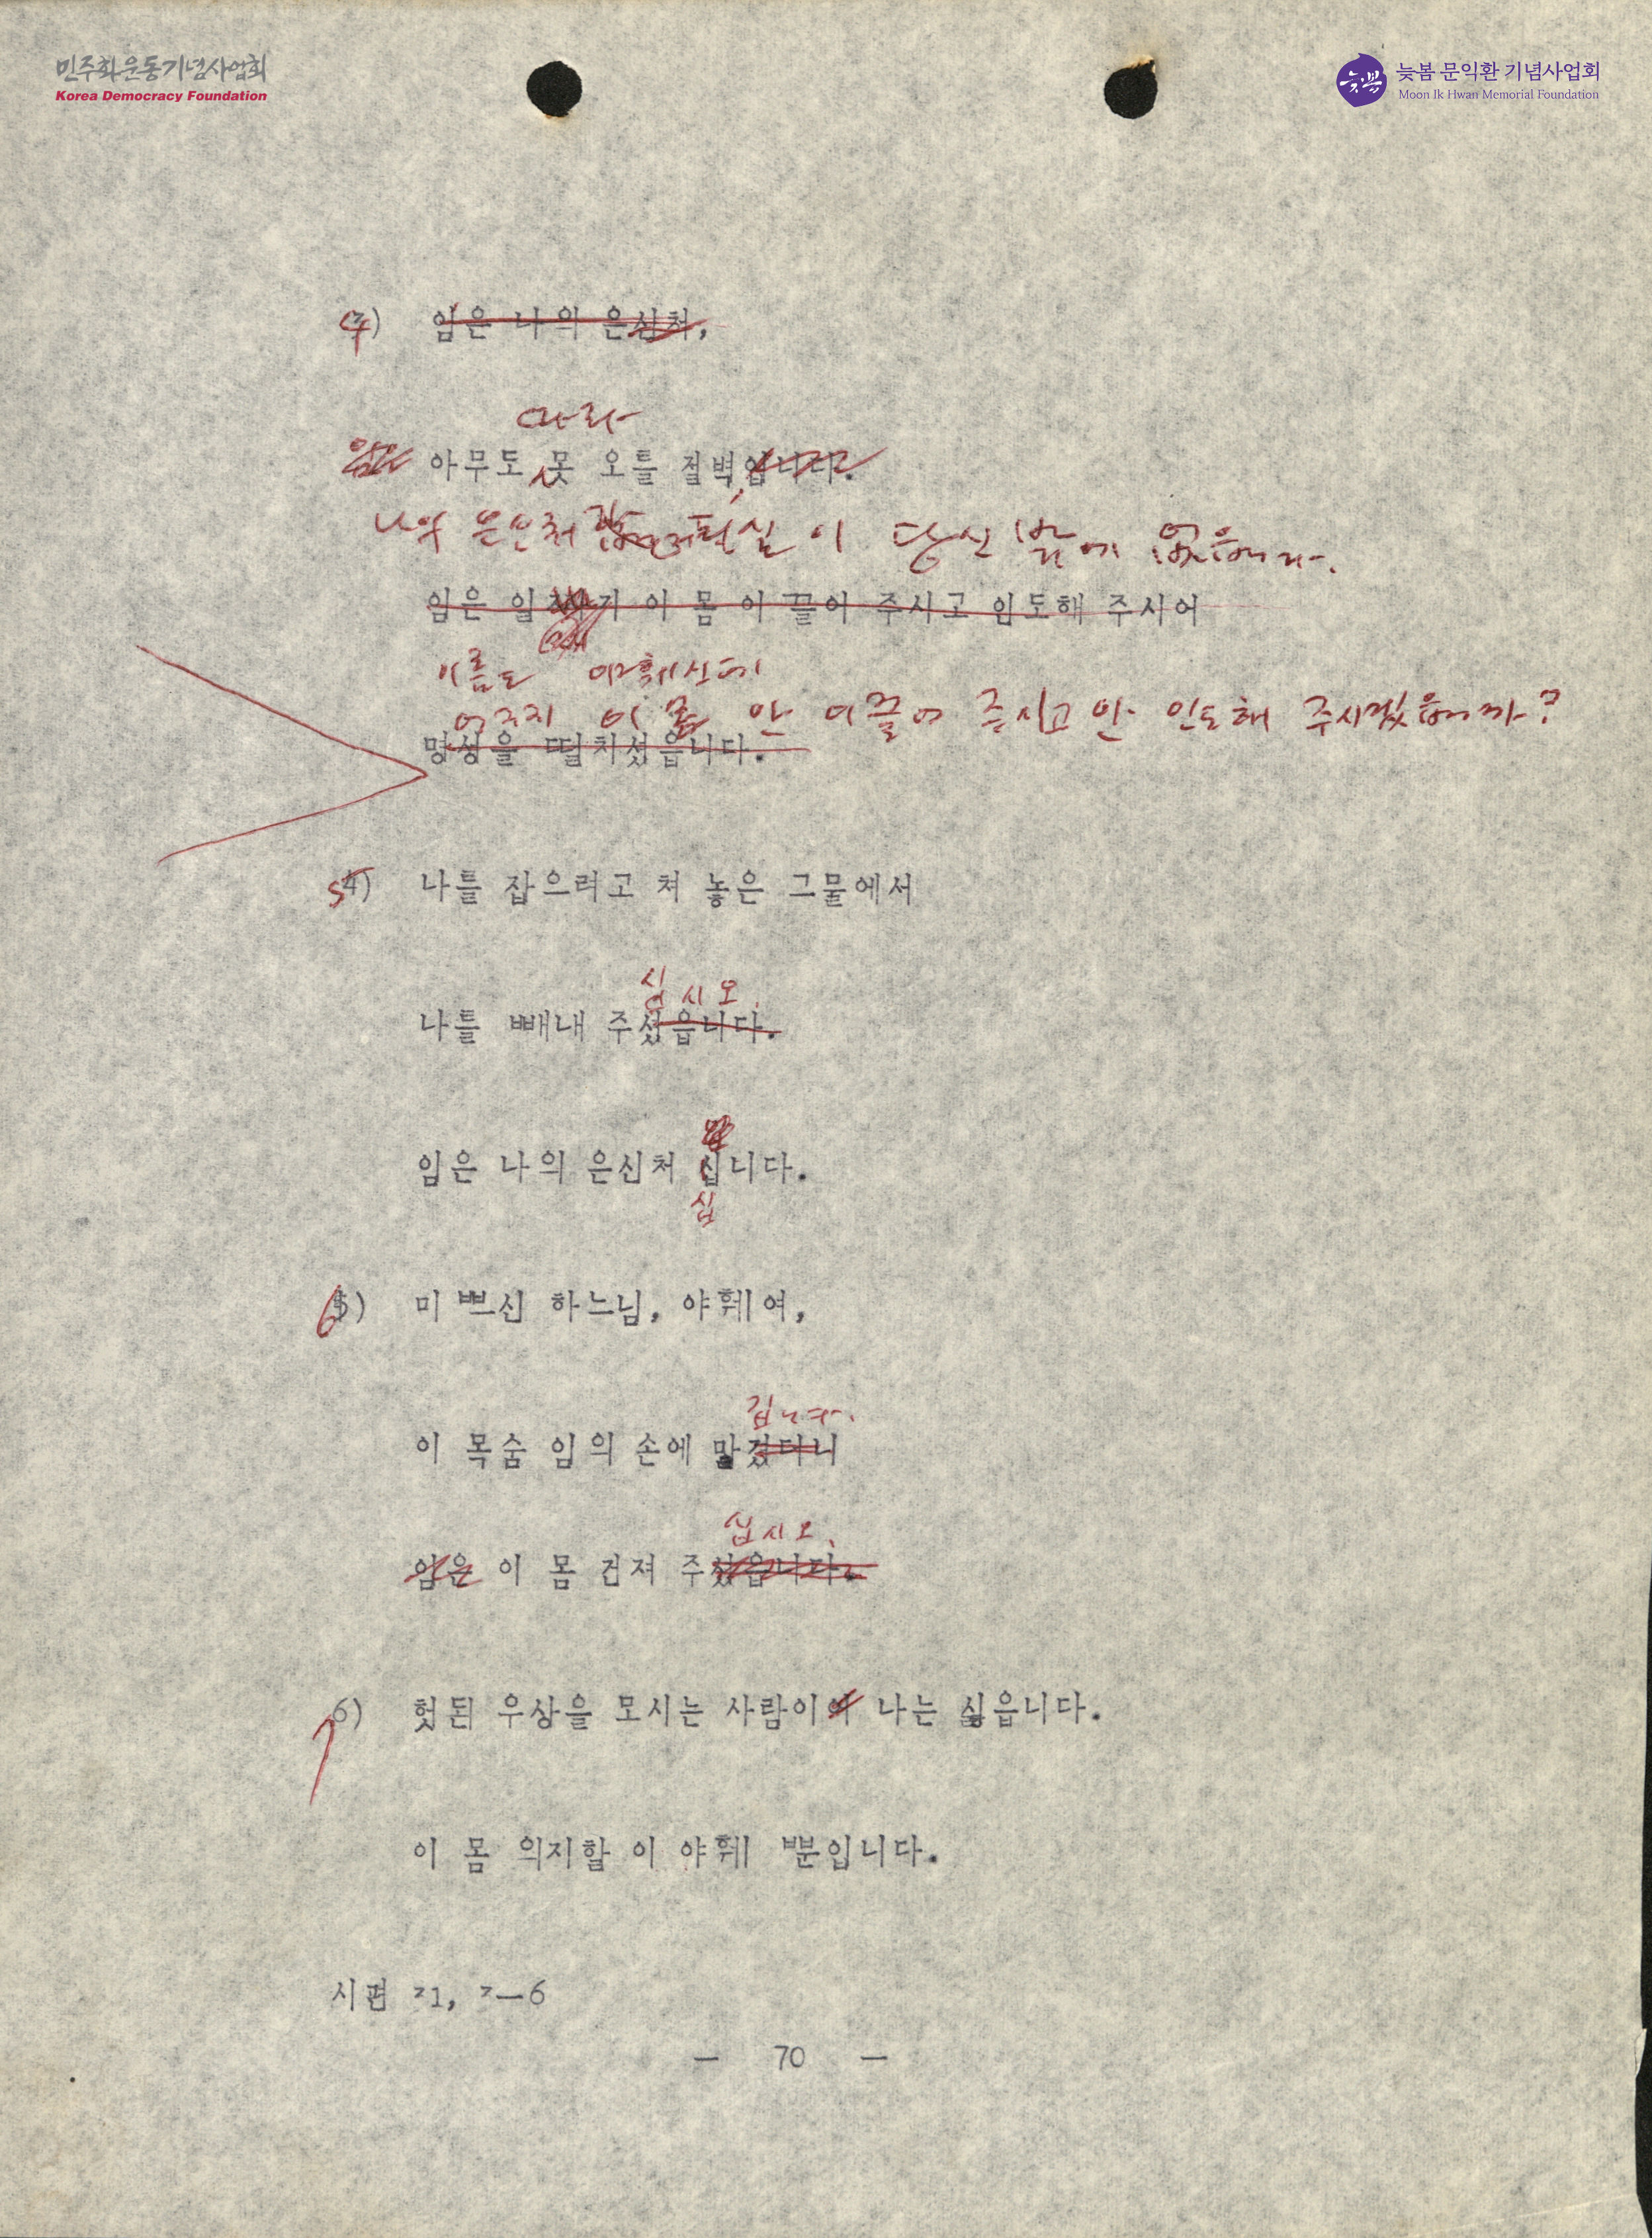 민주화운동기념사업회
Korea Democracy Foundation
늦봄
늦봄 문익환 기념사업회
Moon Ik Hwan Memorial Foundation
4) 임은 나의 은신처,
따라
아무도 못 오를 절벽입니다.
나의 은신처 피할 이 당신 밖에 없읍니다.
임은 이 몸 이끌어 주시고 인도해 주시어
이름도 야훼신데
어찌 이 몸 안 이끌어 주시고 안 인도해 주시겠읍니까?
명성을 떨치셨읍니다.
5 4) 나를 잡으려고 쳐 놓은 그물에서
십시오.
나를 빼내 주셨읍니다.
임은 나의 은신처 십니다.
십
6 5) 미쁘신 하느님, 야훼여,
깁니다.
이 목숨 임의 손에 맡겼더니
십시오.
임은 이 몸 건져 주셨읍니다.
7 6) 헛된 우상을 모시는 사람이야 나는 싫읍니다.
이 몸 의지할 이 야훼 뿐입니다.
시편 31, 3—6
— 70 —